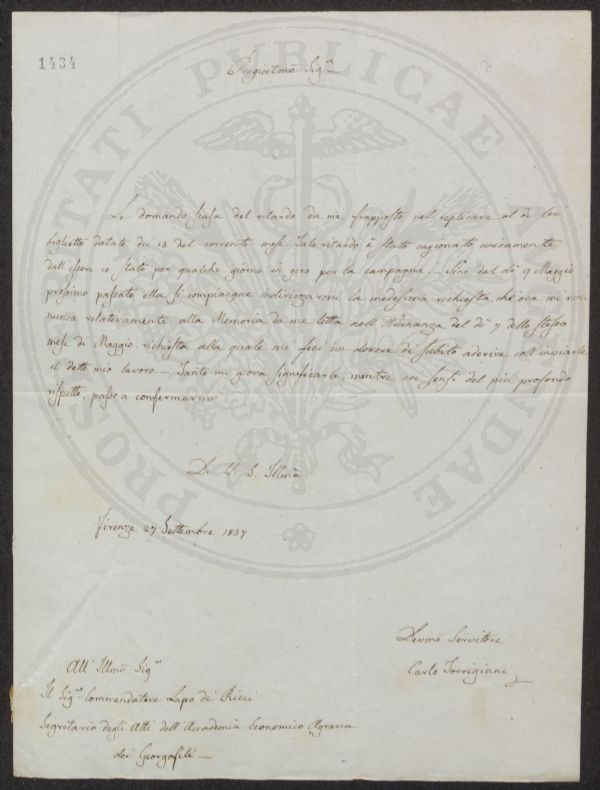 1434
Pregiatmo Sigre
Le domando scusa del ritardo da me frapposto nel replicare al di lei
biglietto datato dei 13 del corrente mese. Tale ritardo è stato cagionato unicamente
dall'essere io stato per qualche giorno in giro per la campagna — Fino dal dì 9 Maggio
prossimo passato ella si compiacque indirizzarmi la medesima richiesta, che ora mi rin-
nuova relativamente alla Memoria da me letta nell'Adunanza del dì 7 dello stesso
mese di Maggio, richiesta alla quale mi feci un dovere di subito aderire coll'inviarle
il detto mio lavoro. — Tanto mi giova significarle, mentre coi sensi del più profondo
rispetto, passo a confermarmi
Di V. S. Illma
Firenze 27 Settembre 1837
Devmo Servitore
Carlo Torrigiani
All' Illmo Sigre
Il Sigre Commendatore Lapo de Ricci
Segretario degli Atti dell'Accademia Economico Agraria
dei Georgofili —
PROSPERITATI PUBLICAE AUGENDAE